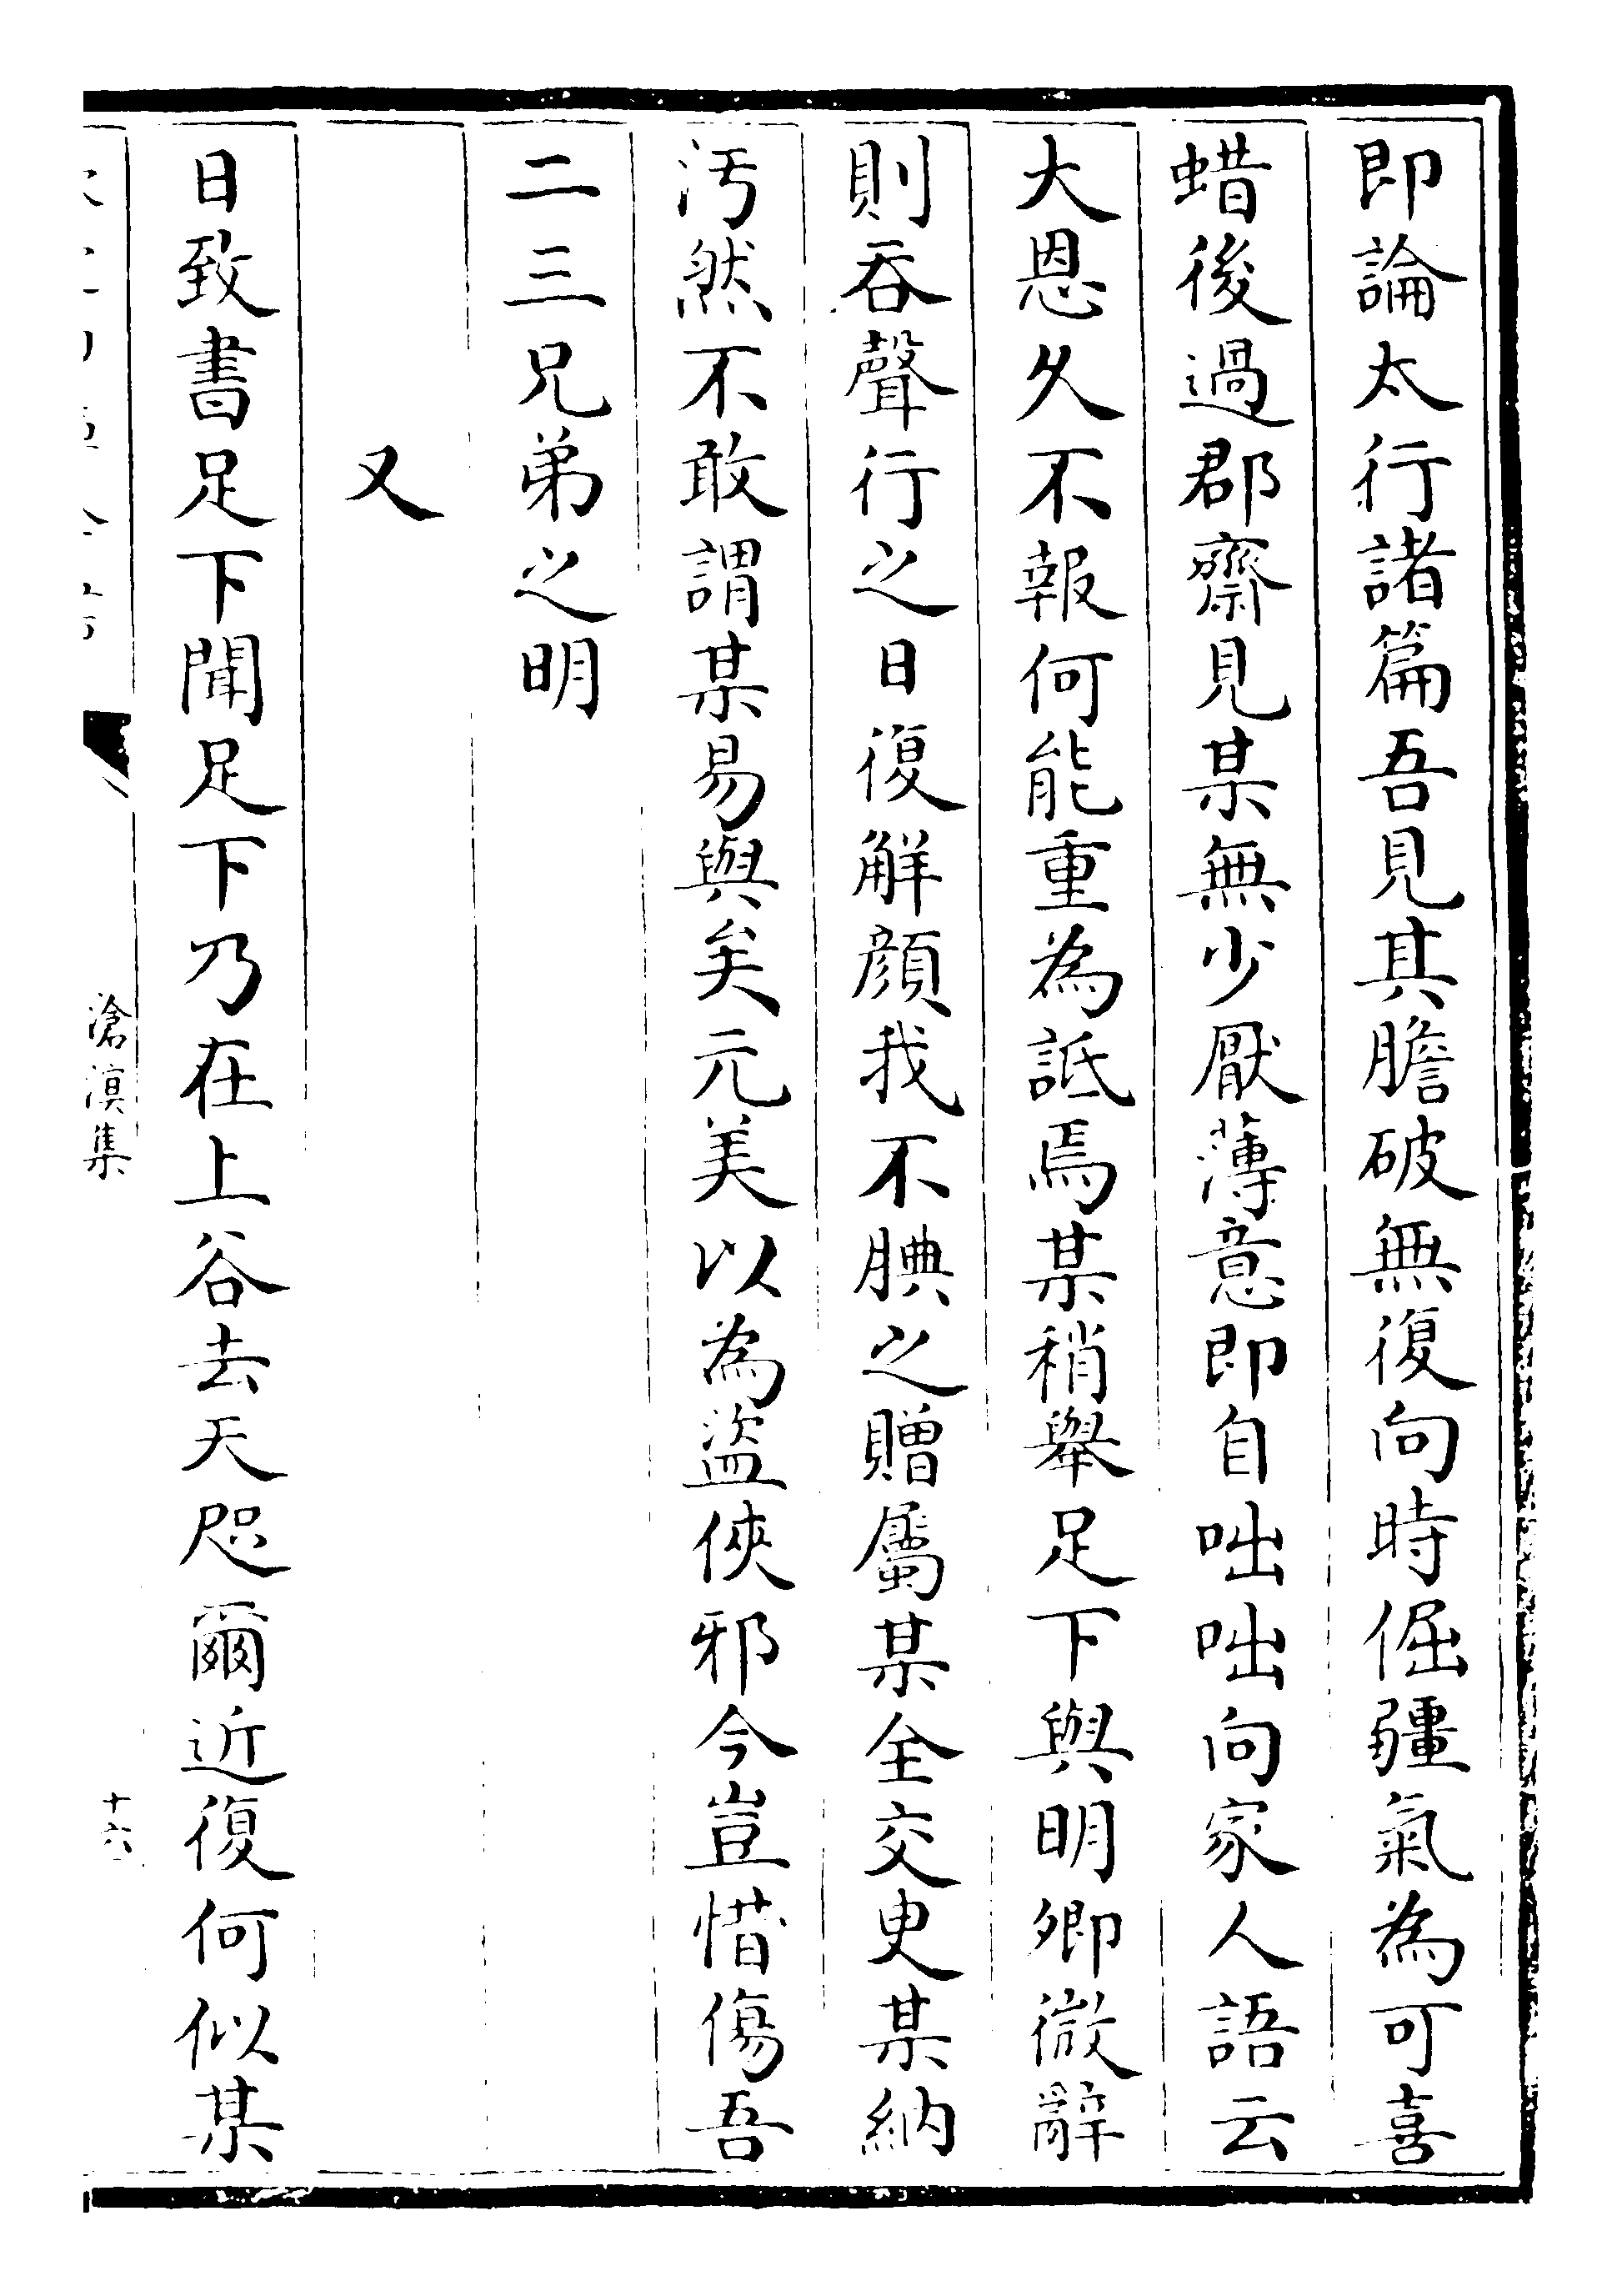 即論太行諸篇吾見其膽破無復向時倔彊氣為可喜
蜡後過郡齋見某無少厭薄意即自咄咄向家人語云
大恩久不報何能重為詆焉某稍舉足下與明卿微辭
則吞聲行之日復解顔我不腆之贈屬某全交吏某納
汚然不敢謂某易與矣元美以為盜俠邪今豈惜傷吾
二三兄弟之明
又
日致書足下聞足下乃在上谷去天咫爾近復何似某
滄溟集
十六